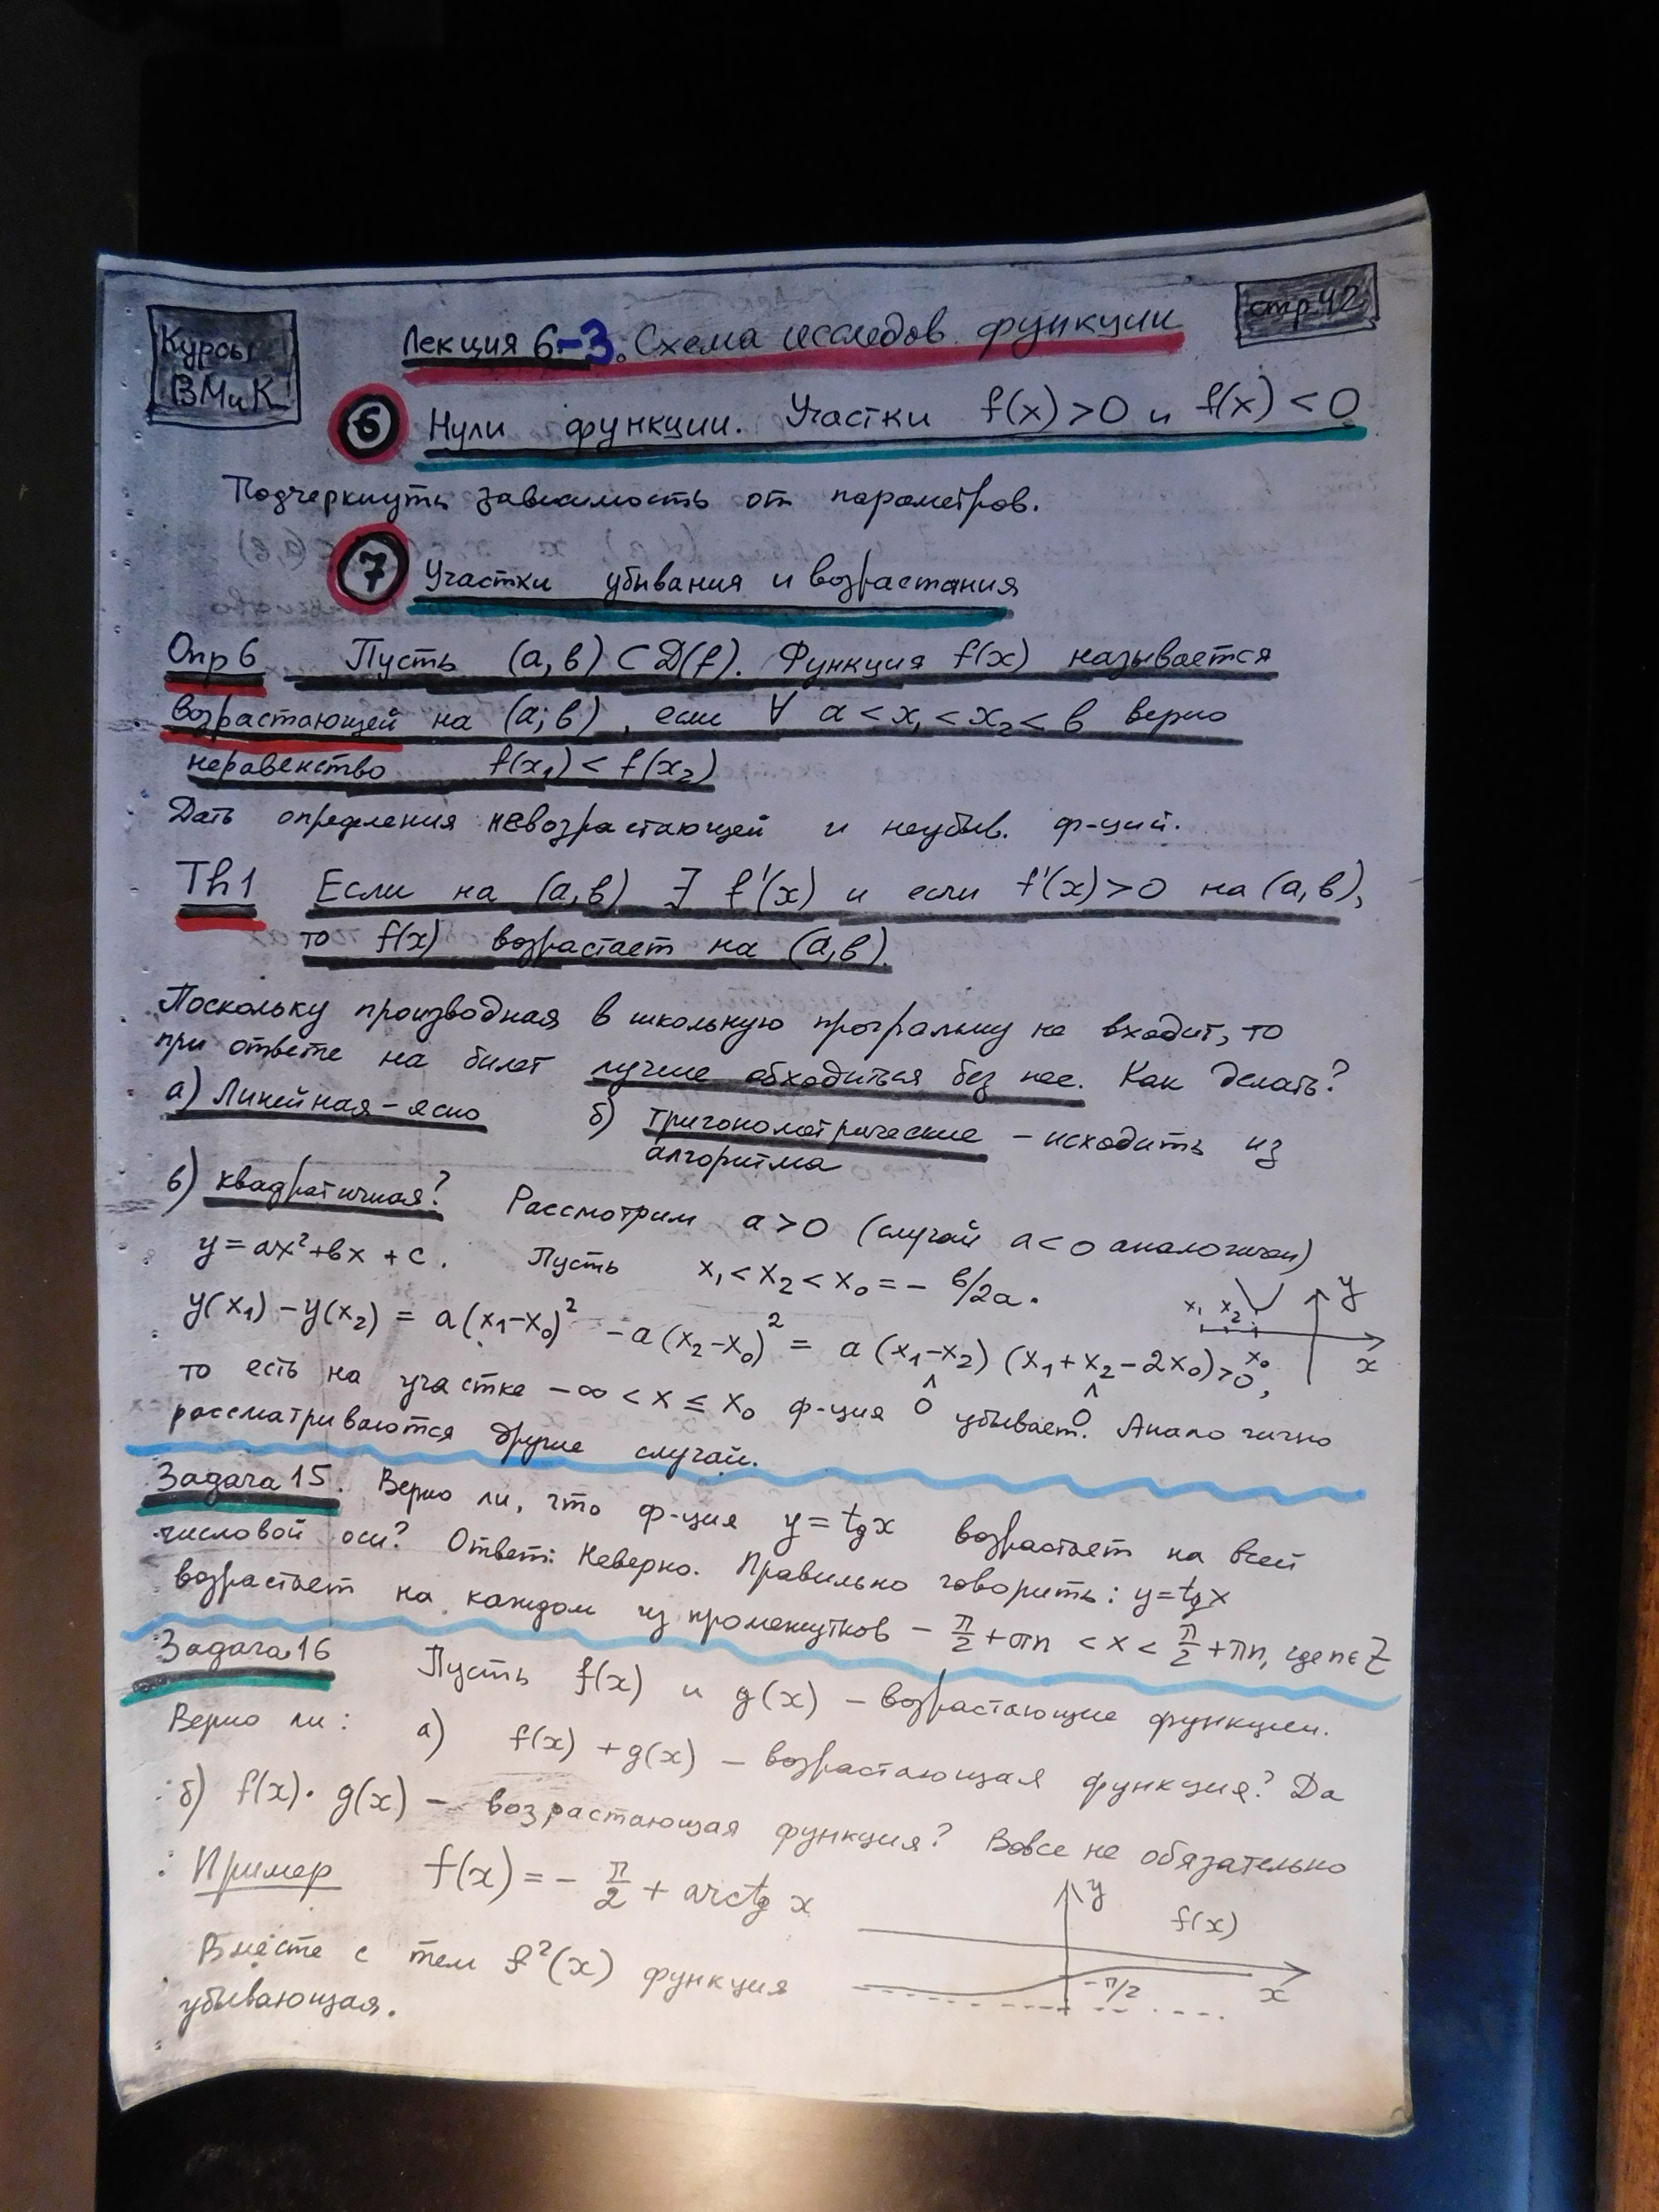 Курсы
ВМиК
Лекция 6-3. Схема исследов. функции
стр.42
6 Нули функции. Участки f(x)>0 и f(x)<0
Подчеркнуть зависимость от параметров.
7 Участки убывания и возрастания
Опр 6 Пусть (a,b) ⊂ D(f). Функция f(x) называется
возрастающей на (a;b), если ∀ a<x₁<x₂<b верно
неравенство f(x₁)<f(x₂)
Дать определения невозрастающей и неубыв. ф-ций.
Th1 Если на (a,b) ∃ f'(x) и если f'(x)>0 на (a,b),
то f(x) возрастает на (a,b).
Поскольку производная в школьную программу не входит, то
при ответе на билет лучше обходиться без нее. Как делать?
а) Линейная – ясно б) тригонометрические – исходить из
алгоритма
в) квадратичная? Рассмотрим a>0 (случай a<0 аналогичен)
y=ax²+bx+c. Пусть x₁<x₂<x₀=-b/2a.
y(x₁)-y(x₂) = a(x₁-x₀)² - a(x₂-x₀)² = a(x₁-x₂)(x₁+x₂-2x₀)>0,
^ ^
0 0
x₁ x₂ x₀ y x
то есть на участке -∞<x≤x₀ ф-ция убывает. Аналогично
рассматриваются другие случаи.
Задача 15. Верно ли, что ф-ция y=tgx возрастает на всей
числовой оси? Ответ: Неверно. Правильно говорить: y=tgx
возрастает на каждом из промежутков -π/2+πn <x< π/2+πn, где n∈Z
Задача 16 Пусть f(x) и g(x) – возрастающие функции.
Верно ли: а) f(x)+g(x) – возрастающая функция? Да
б) f(x)·g(x) – возрастающая функция? Вовсе не обязательно
Пример f(x)=-π/2+arctg x
y f(x)
-π/2 x
Вместе с тем f²(x) функция
убывающая.